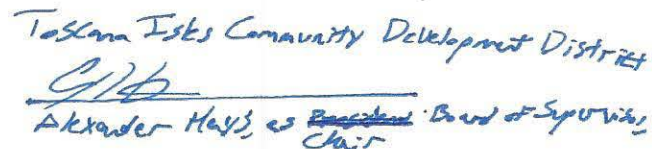 Toscana Isles Community Development District
Alexander Hays, as Board of Supervisor,
Chair